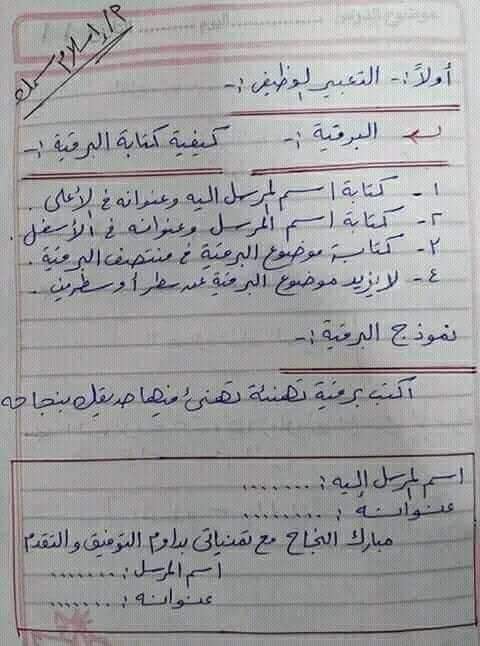 موضوع الدرس .................. اليوم ............
م/ إسلام سمك
أولاً :- التعبير الوظيفى :-
البرقية :- كيفية كتابة البرقية :-
١- كتابة اسم المرسل إليه وعنوانه فى الأعلى .
٢- كتابة اسم المرسل وعنوانه فى الأسفل .
٣- كتابة موضوع البرقية فى منتصف البرقية .
٤- لا يزيد موضوع البرقية عن سطر أو سطرين .
نموذج البرقية :-
اكتب برقية تهنئة تهنئ فيها صديقك بنجاحه
اسم المرسل إليه : .......
عنوانه : .........
مبارك النجاح مع تمنياتى بدوام التوفيق والتقدم
اسم المرسل : .......
عنوانه : .......